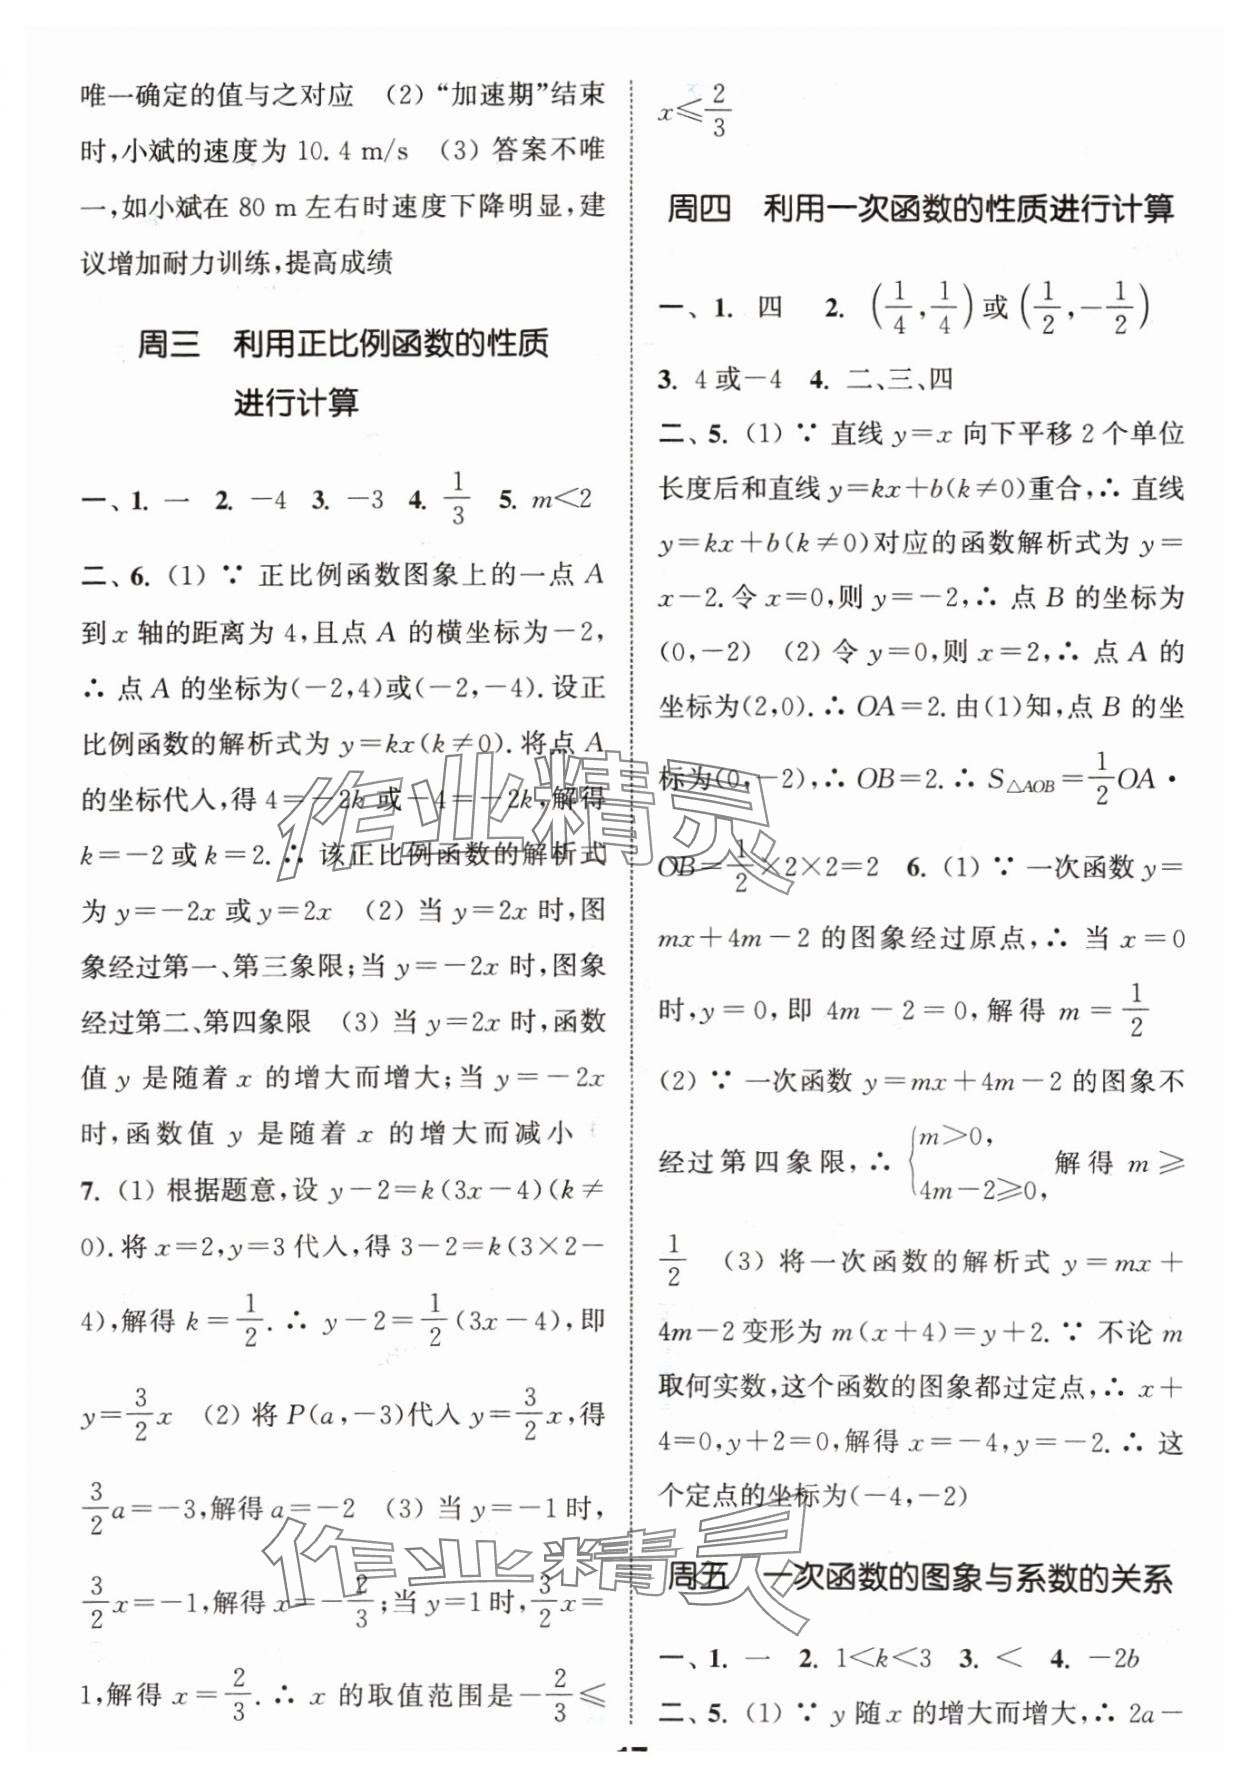 唯一确定的值与之对应　(2)“加速期”结束
时,小斌的速度为 10.4 m/s　(3) 答案不唯
一,如小斌在 80 m 左右时速度下降明显,建
议增加耐力训练,提高成绩
周三　利用正比例函数的性质
进行计算
一、1. 一　2. －4　3. －3　4. 1/3　5. m＜2
二、6. (1) ∵ 正比例函数图象上的一点 A
到 x 轴的距离为 4,且点 A 的横坐标为－2,
∴ 点 A 的坐标为(－2,4)或(－2,－4).设正
比例函数的解析式为 y＝kx(k≠0).将点 A
的坐标代入,得 4＝－2k 或－4＝－2k,解得
k＝－2 或 k＝2.∴ 该正比例函数的解析式
为 y＝－2x 或 y＝2x　(2) 当 y＝2x 时,图
象经过第一、第三象限;当 y＝－2x 时,图象
经过第二、第四象限　(3) 当 y＝2x 时,函数
值 y 是随着 x 的增大而增大;当 y＝－2x
时,函数值 y 是随着 x 的增大而减小
7. (1) 根据题意,设 y－2＝k(3x－4)(k≠
0).将 x＝2,y＝3 代入,得 3－2＝k(3×2－
4),解得 k＝1/2.∴ y－2＝1/2(3x－4),即
y＝3/2x　(2) 将 P(a,－3)代入 y＝3/2x,得
3/2a＝－3,解得 a＝－2　(3) 当 y＝－1 时,
3/2x＝－1,解得 x＝－2/3;当 y＝1 时,3/2x＝
1,解得 x＝2/3.∴ x 的取值范围是－2/3≤
x≤2/3
周四　利用一次函数的性质进行计算
一、1. 四　2. (1/4,1/4)或(1/2,－1/2)
3. 4 或－4　4. 二、三、四
二、5. (1) ∵ 直线 y＝x 向下平移 2 个单位
长度后和直线 y＝kx＋b(k≠0)重合,∴ 直线
y＝kx＋b(k≠0)对应的函数解析式为 y＝
x－2.令 x＝0,则 y＝－2,∴ 点 B 的坐标为
(0,－2)　(2) 令 y＝0,则 x＝2,∴ 点 A 的
坐标为(2,0).∴ OA＝2.由(1)知,点 B 的坐
标为(0,－2),∴ OB＝2.∴ S△AOB＝1/2OA·
OB＝1/2×2×2＝2　6. (1) ∵ 一次函数 y＝
mx＋4m－2 的图象经过原点,∴ 当 x＝0
时,y＝0,即 4m－2＝0,解得 m＝1/2
(2) ∵ 一次函数 y＝mx＋4m－2 的图象不
经过第四象限,∴ {m＞0, 4m－2≥0, 解得 m≥
1/2　(3) 将一次函数的解析式 y＝mx＋
4m－2 变形为 m(x＋4)＝y＋2.∵ 不论 m
取何实数,这个函数的图象都过定点,∴ x＋
4＝0,y＋2＝0,解得 x＝－4,y＝－2.∴ 这
个定点的坐标为(－4,－2)
周五　一次函数的图象与系数的关系
一、1. 一　2. 1＜k＜3　3. ＜　4. －2b
二、5. (1) ∵ y 随 x 的增大而增大,∴ 2a－
17
作业精灵
作业精灵